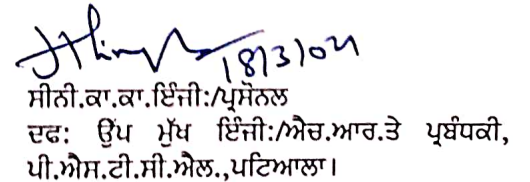 18/3/04
ਸੀਨੀ.ਕਾ.ਕਾ.ਇੰਜੀ:/ਪ੍ਰਸੋਨਲ
ਦਫ: ਉਪ ਮੁੱਖ ਇੰਜੀ:/ਐਚ.ਆਰ.ਤੇ ਪ੍ਰਬੰਧਕੀ,
ਪੀ.ਐਸ.ਟੀ.ਸੀ.ਐਲ.,ਪਟਿਆਲਾ।